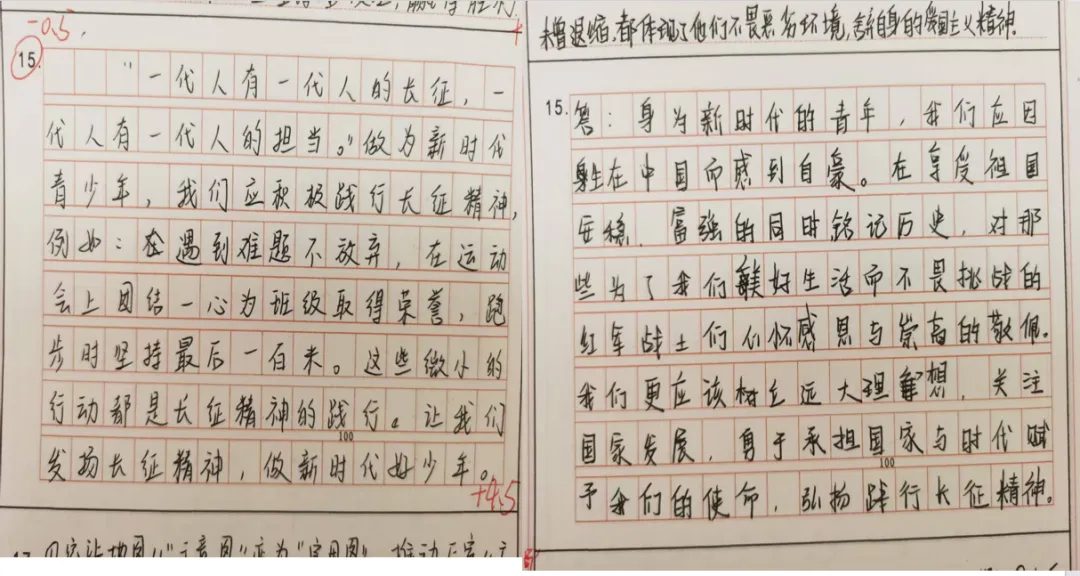 -0.5
15.
"一代人有一代人的长征,一
代人有一代人的担当。"做为新时代
青少年,我们应积极践行长征精神,
例如:在遇到难题不放弃,在运动
会上团结一心为班级取得荣誉,跑
步时坚持最后一百米。这些微小的
行动都是长征精神的践行。让我们
100
发扬长征精神,做新时代好少年。
+4.5
未曾退缩.都体现了他们不畏恶劣环境,舍弃自身的爱国主义精神.
15.
答:身为新时代的青年,我们应因
身在中国而感到自豪。在享受祖国
安稳、富强的同时铭记历史,对那
些为了我们美好生活而不畏挑战的
红军战士们心怀感恩与崇高的敬佩.
我们更应该树立远大理想,关注
国家发展,勇于承担国家与时代赋
100
予我们的使命,弘扬践行长征精神。